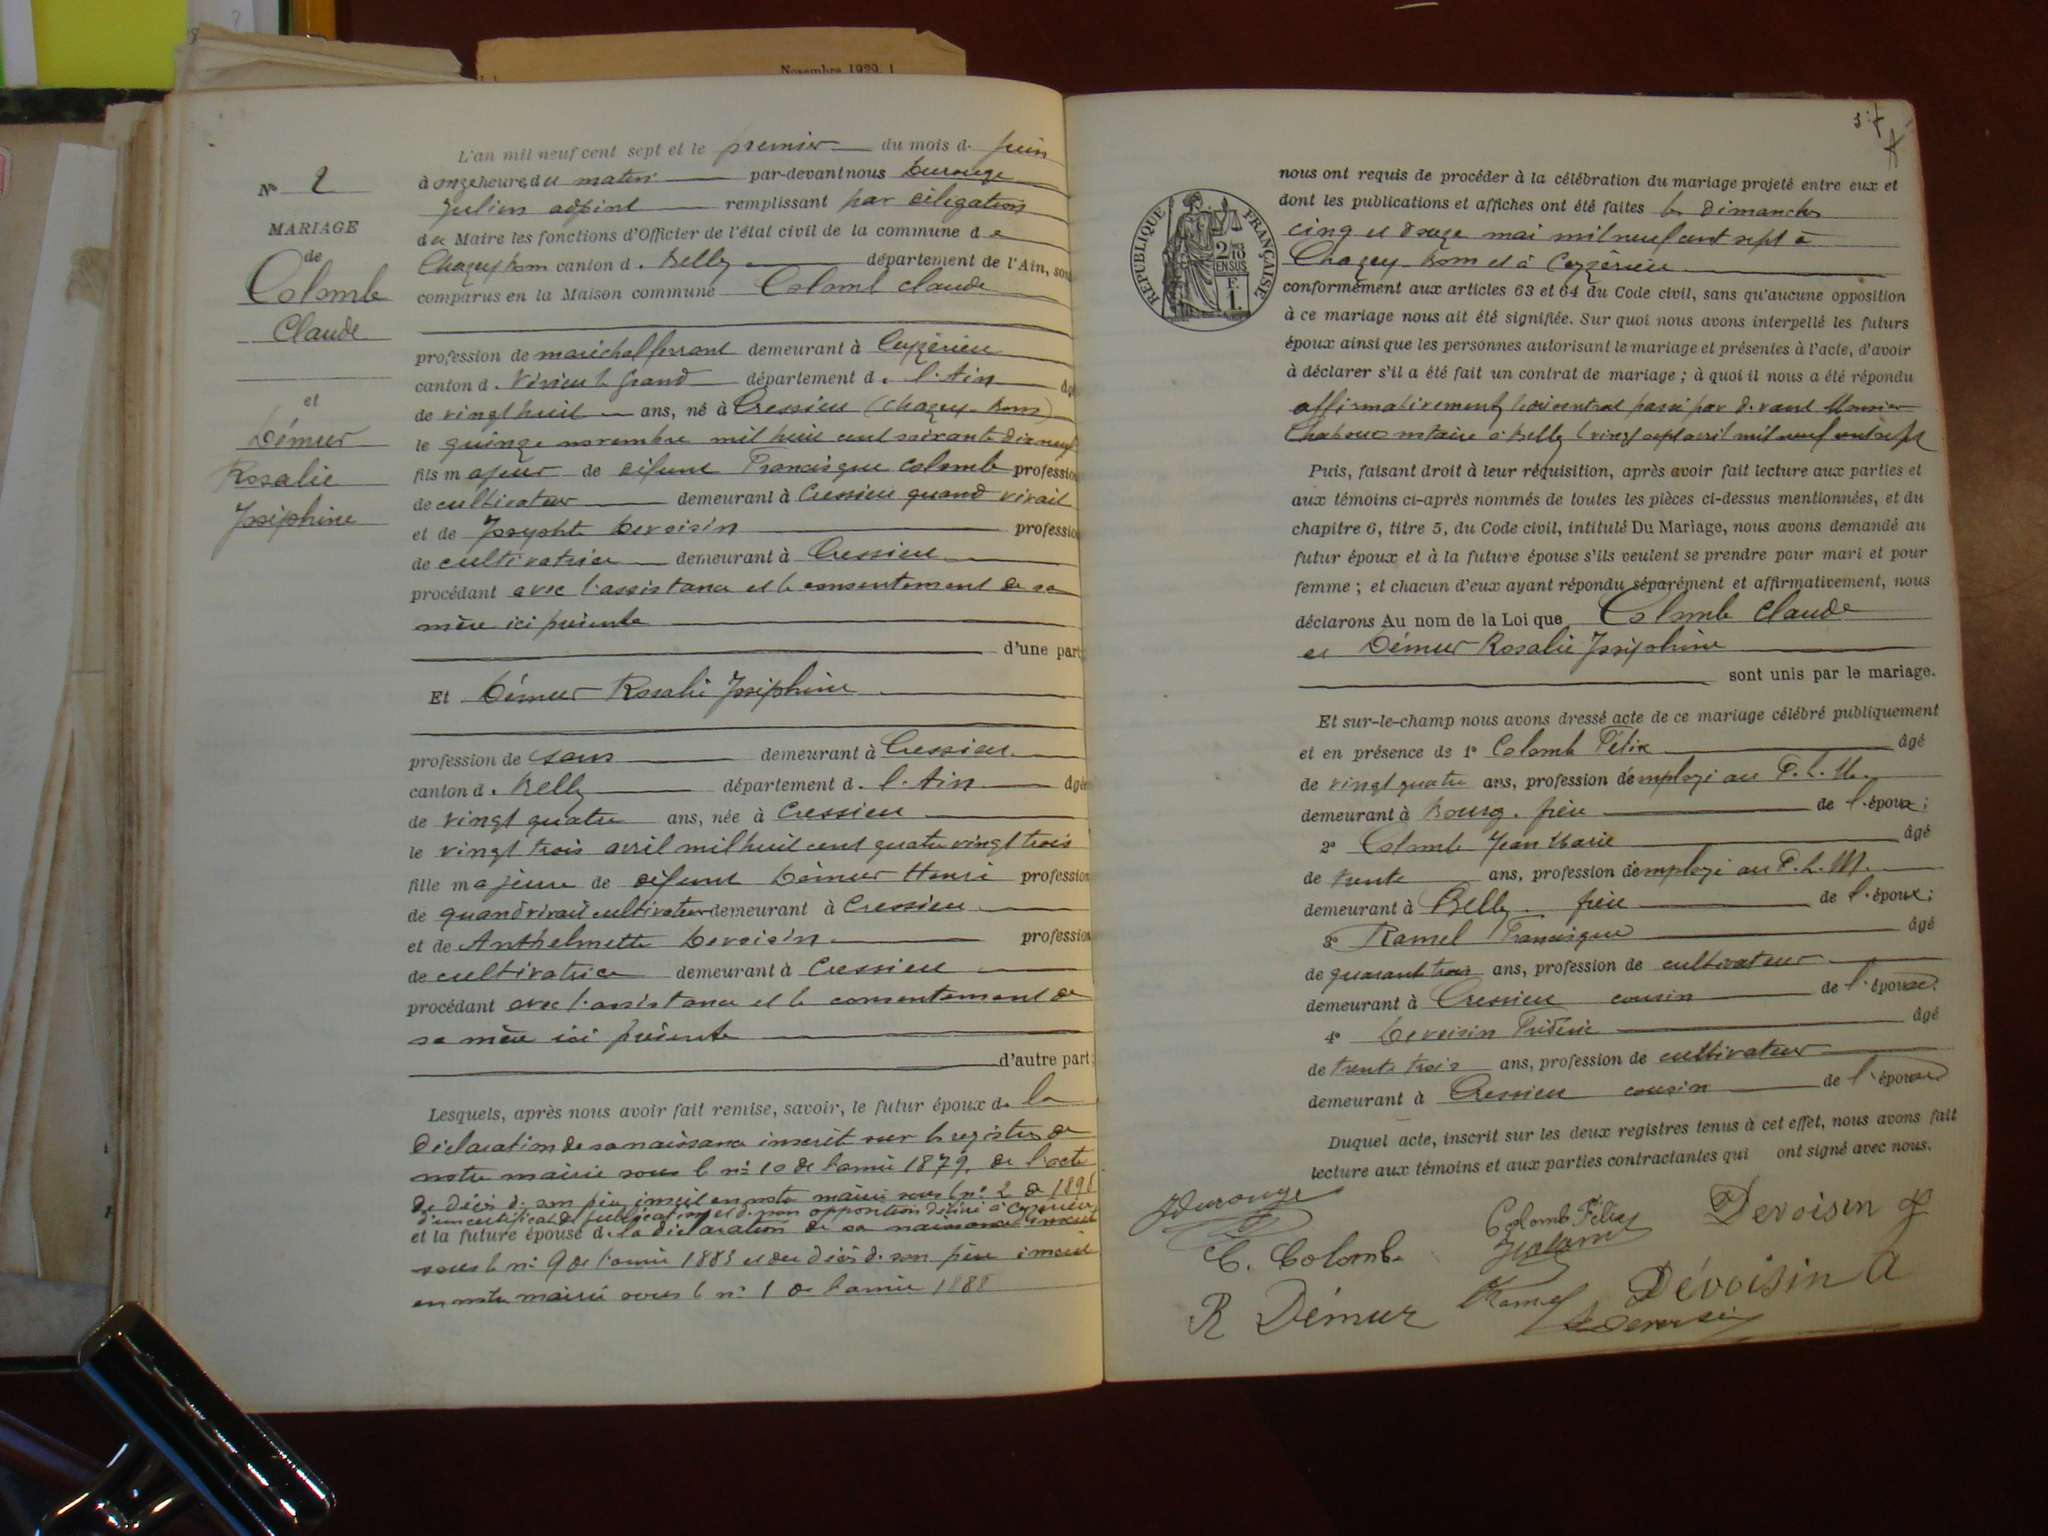 Novembre 1929
L'an mil neuf cent sept et le premier du mois d. Juin
à onze heures du matin par-devant nous Durouge
Julien adjoint remplissant par délégation
du Maire les fonctions d'Officier de l'état civil de la commune de
Chazey bons canton d. Belley département de l'Ain, sont
comparus en la Maison commune Colomb Claude
profession de maréchal ferrant demeurant à Ceyzérieu
canton d. Virieu le Grand département d. l'Ain âgé
de vingt huit ans, né à Cressieu (Chazey-bons)
le quinze novembre mil huit cent soixante dix neuf
fils majeur de défunt Francisque Colomb profession
de cultivateur demeurant à Cressieu quand vivait
et de Josephte Devoisin profession
de cultivatrice demeurant à Cressieu
procédant avec l'assistance et le consentement de sa
mère ici présente
d'une part;
Et Démur Rosalie Joséphine
profession de sans demeurant à Cressieu
canton d. Belley département d. l'Ain âgée
de vingt quatre ans, née à Cressieu
le vingt trois avril mil huit cent quatre vingt trois
fille majeure de défunt Démur Henri profession
de quand vivait cultivateur demeurant à Cressieu
et de Anthelmette Devoisin profession
de cultivatrice demeurant à Cressieu
procédant avec l'assistance et le consentement de
sa mère ici présente
d'autre part;
Lesquels, après nous avoir fait remise, savoir, le futur époux de la
déclaration de sa naissance inscrit sur le registre de
notre mairie sous le n° 10 de l'année 1879, de l'acte
de décès de son père inscrit en notre mairie sous le n° 2 de 1898
d'un certificat de publication et de non opposition délivré à Ceyzérieu
et la future épouse de la déclaration de sa naissance inscrit
sous le n° 9 de l'année 1883 et du décès de son père inscrit
en notre mairie sous le n° 1 de l'année 1888
N° 2
MARIAGE
de
Colomb
Claude
et
Démur
Rosalie
Joséphine
nous ont requis de procéder à la célébration du mariage projeté entre eux et
dont les publications et affiches ont été faites les dimanches
cinq et douze mai mil neuf cent sept à
Chazey-bons et à Ceyzérieu
conformément aux articles 63 et 64 du Code civil, sans qu'aucune opposition
à ce mariage nous ait été signifiée. Sur quoi nous avons interpellé les futurs
époux ainsi que les personnes autorisant le mariage et présentes à l'acte, d'avoir
à déclarer s'il a été fait un contrat de mariage; à quoi il nous a été répondu
affirmativement, contrat passé par devant Monsieur
notaire à Belley le vingt sept avril mil neuf cent sept
Puis, faisant droit à leur réquisition, après avoir fait lecture aux parties et
aux témoins ci-après nommés de toutes les pièces ci-dessus mentionnées, et du
chapitre 6, titre 5, du Code civil, intitulé Du Mariage, nous avons demandé au
futur époux et à la future épouse s'ils veulent se prendre pour mari et pour
femme; et chacun d'eux ayant répondu séparément et affirmativement, nous
déclarons Au nom de la Loi que Colomb Claude
et Démur Rosalie Joséphine
sont unis par le mariage.
Et sur-le-champ nous avons dressé acte de ce mariage célébré publiquement
et en présence de 1° Colomb Félix âgé
de vingt quatre ans, profession d'employé au P. L. M.
demeurant à Bourg. frère de l'époux;
2° Colomb Jean Marie âgé
de trente ans, profession d'employé au P. L. M.
demeurant à Belley. frère de l'époux;
3° Ramel Francisque âgé
de quarante trois ans, profession de cultivateur
demeurant à Cressieu cousin de l'épouse;
4° Devoisin Frédéric âgé
de trente trois ans, profession de cultivateur
demeurant à Cressieu cousin de l'épouse
Duquel acte, inscrit sur les deux registres tenus à cet effet, nous avons fait
lecture aux témoins et aux parties contractantes qui ont signé avec nous.
RÉPUBLIQUE FRANÇAISE
2/10 EN SUS
F. 1.
JDurouge
C. Colomb
Colomb Félix
Devoisin J
R Démur
Ramel
Dévoisin A